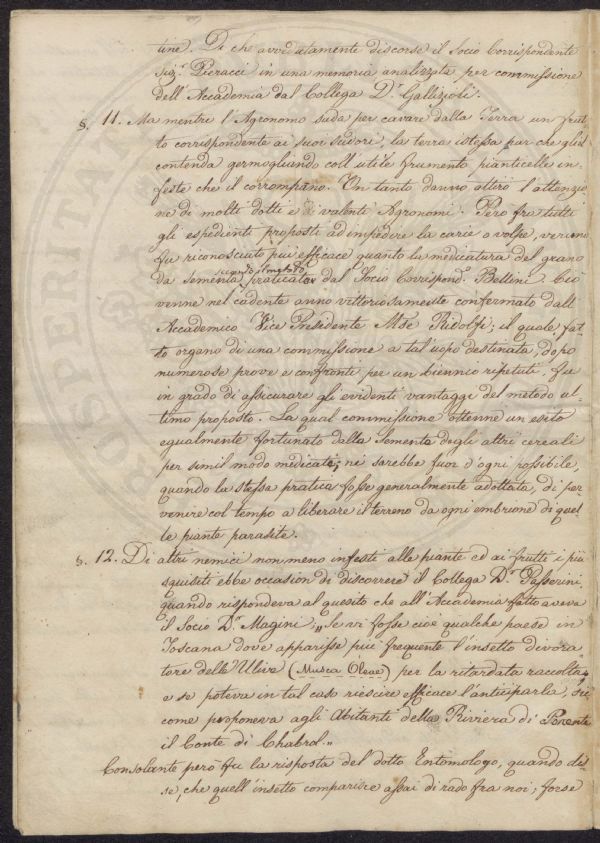 tine. Di che avvedutamente discorse il Socio Corrispondente
Sig.r Pieracci in una memoria analizzata per commissione
dell'Accademia dal Collega D.r Gallizioli.
§. 11. Ma mentre l'Agronomo suda per cavare dalla Terra un frut-
to corrispondente ai suoi sudori, la terra istessa par che gliel
contenda germogliando coll'utile frumento pianticelle in-
feste che il corrompano. Un tanto danno attirò l'attenzio
ne di molti dotti e di valenti Agronomi. Però fra tutti
gli espedienti proposti ad impedire la carie o volpe, veruno
fu riconosciuto più efficace quanto la medicatura del grano
da sementa secondo il metodo praticato dal Socio Corrispond. Bellini. Ciò
venne nel cadente anno vittoriosamente confermato dall'
Accademico Vice Presidente M.se Ridolfi; il quale fat-
to organo di una commissione a tal'uopo destinata, dopo
numerose prove e confronti per un biennio ripetuti fu
in grado di assicurare gli evidenti vantaggi del metodo ul-
timo proposto. La qual commissione ottenne un esito
egualmente fortunato dalla sementa degli altri cereali
per simil modo medicati; nè sarebbe fuor d'ogni possibile,
quando la stessa pratica fosse generalmente adottata, di per
venire col tempo a liberare il terreno da ogni embrione di quel-
le piante parasite.
§. 12. Di altri nemici non meno infesti alle piante ed ai frutti i più
squisiti ebbe occasion di discorrere il Collega D.r Passerini,
quando rispondeva al quesito che all'Accademia fatto aveva
il Socio D.r Magini; „Se vi fosse cioè qualche paese in
Toscana dove apparisse più frequente l'insetto divora-
tore delle Ulive (Musca Oleae) per la ritardata raccolta,
e se poteva in tal caso riescire efficace l'anticiparla, sic
come proponeva agli Abitanti della Riviera di Ponente
il Conte di Chabrol.„
Consolante però fu la risposta del dotto Entomologo, quando dis
se, che quell'insetto comparisce assai di rado fra noi, forse